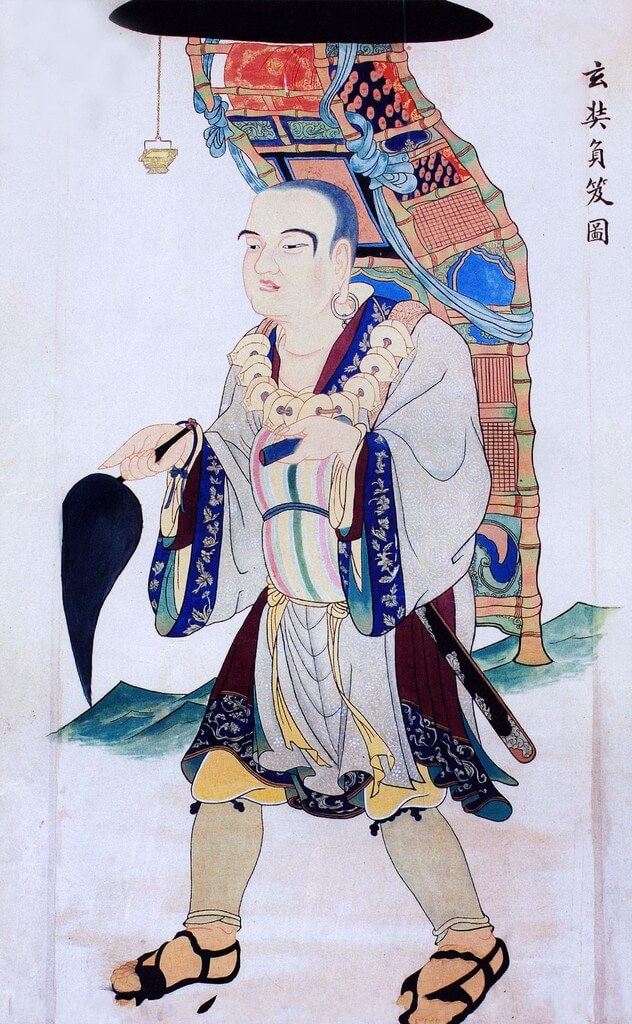 玄奘負笈圖